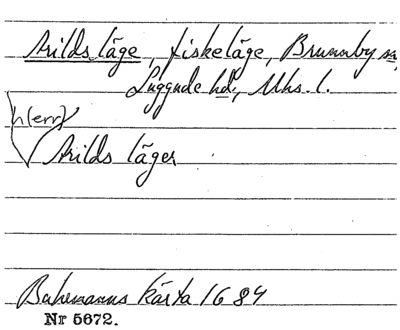 Arilds läge, fiskeläge, Brunnby sn,
Luggude hd., Mhs. l.
h(err)
Arilds läger
Buhrmanns karta 1684
Nr 5672.